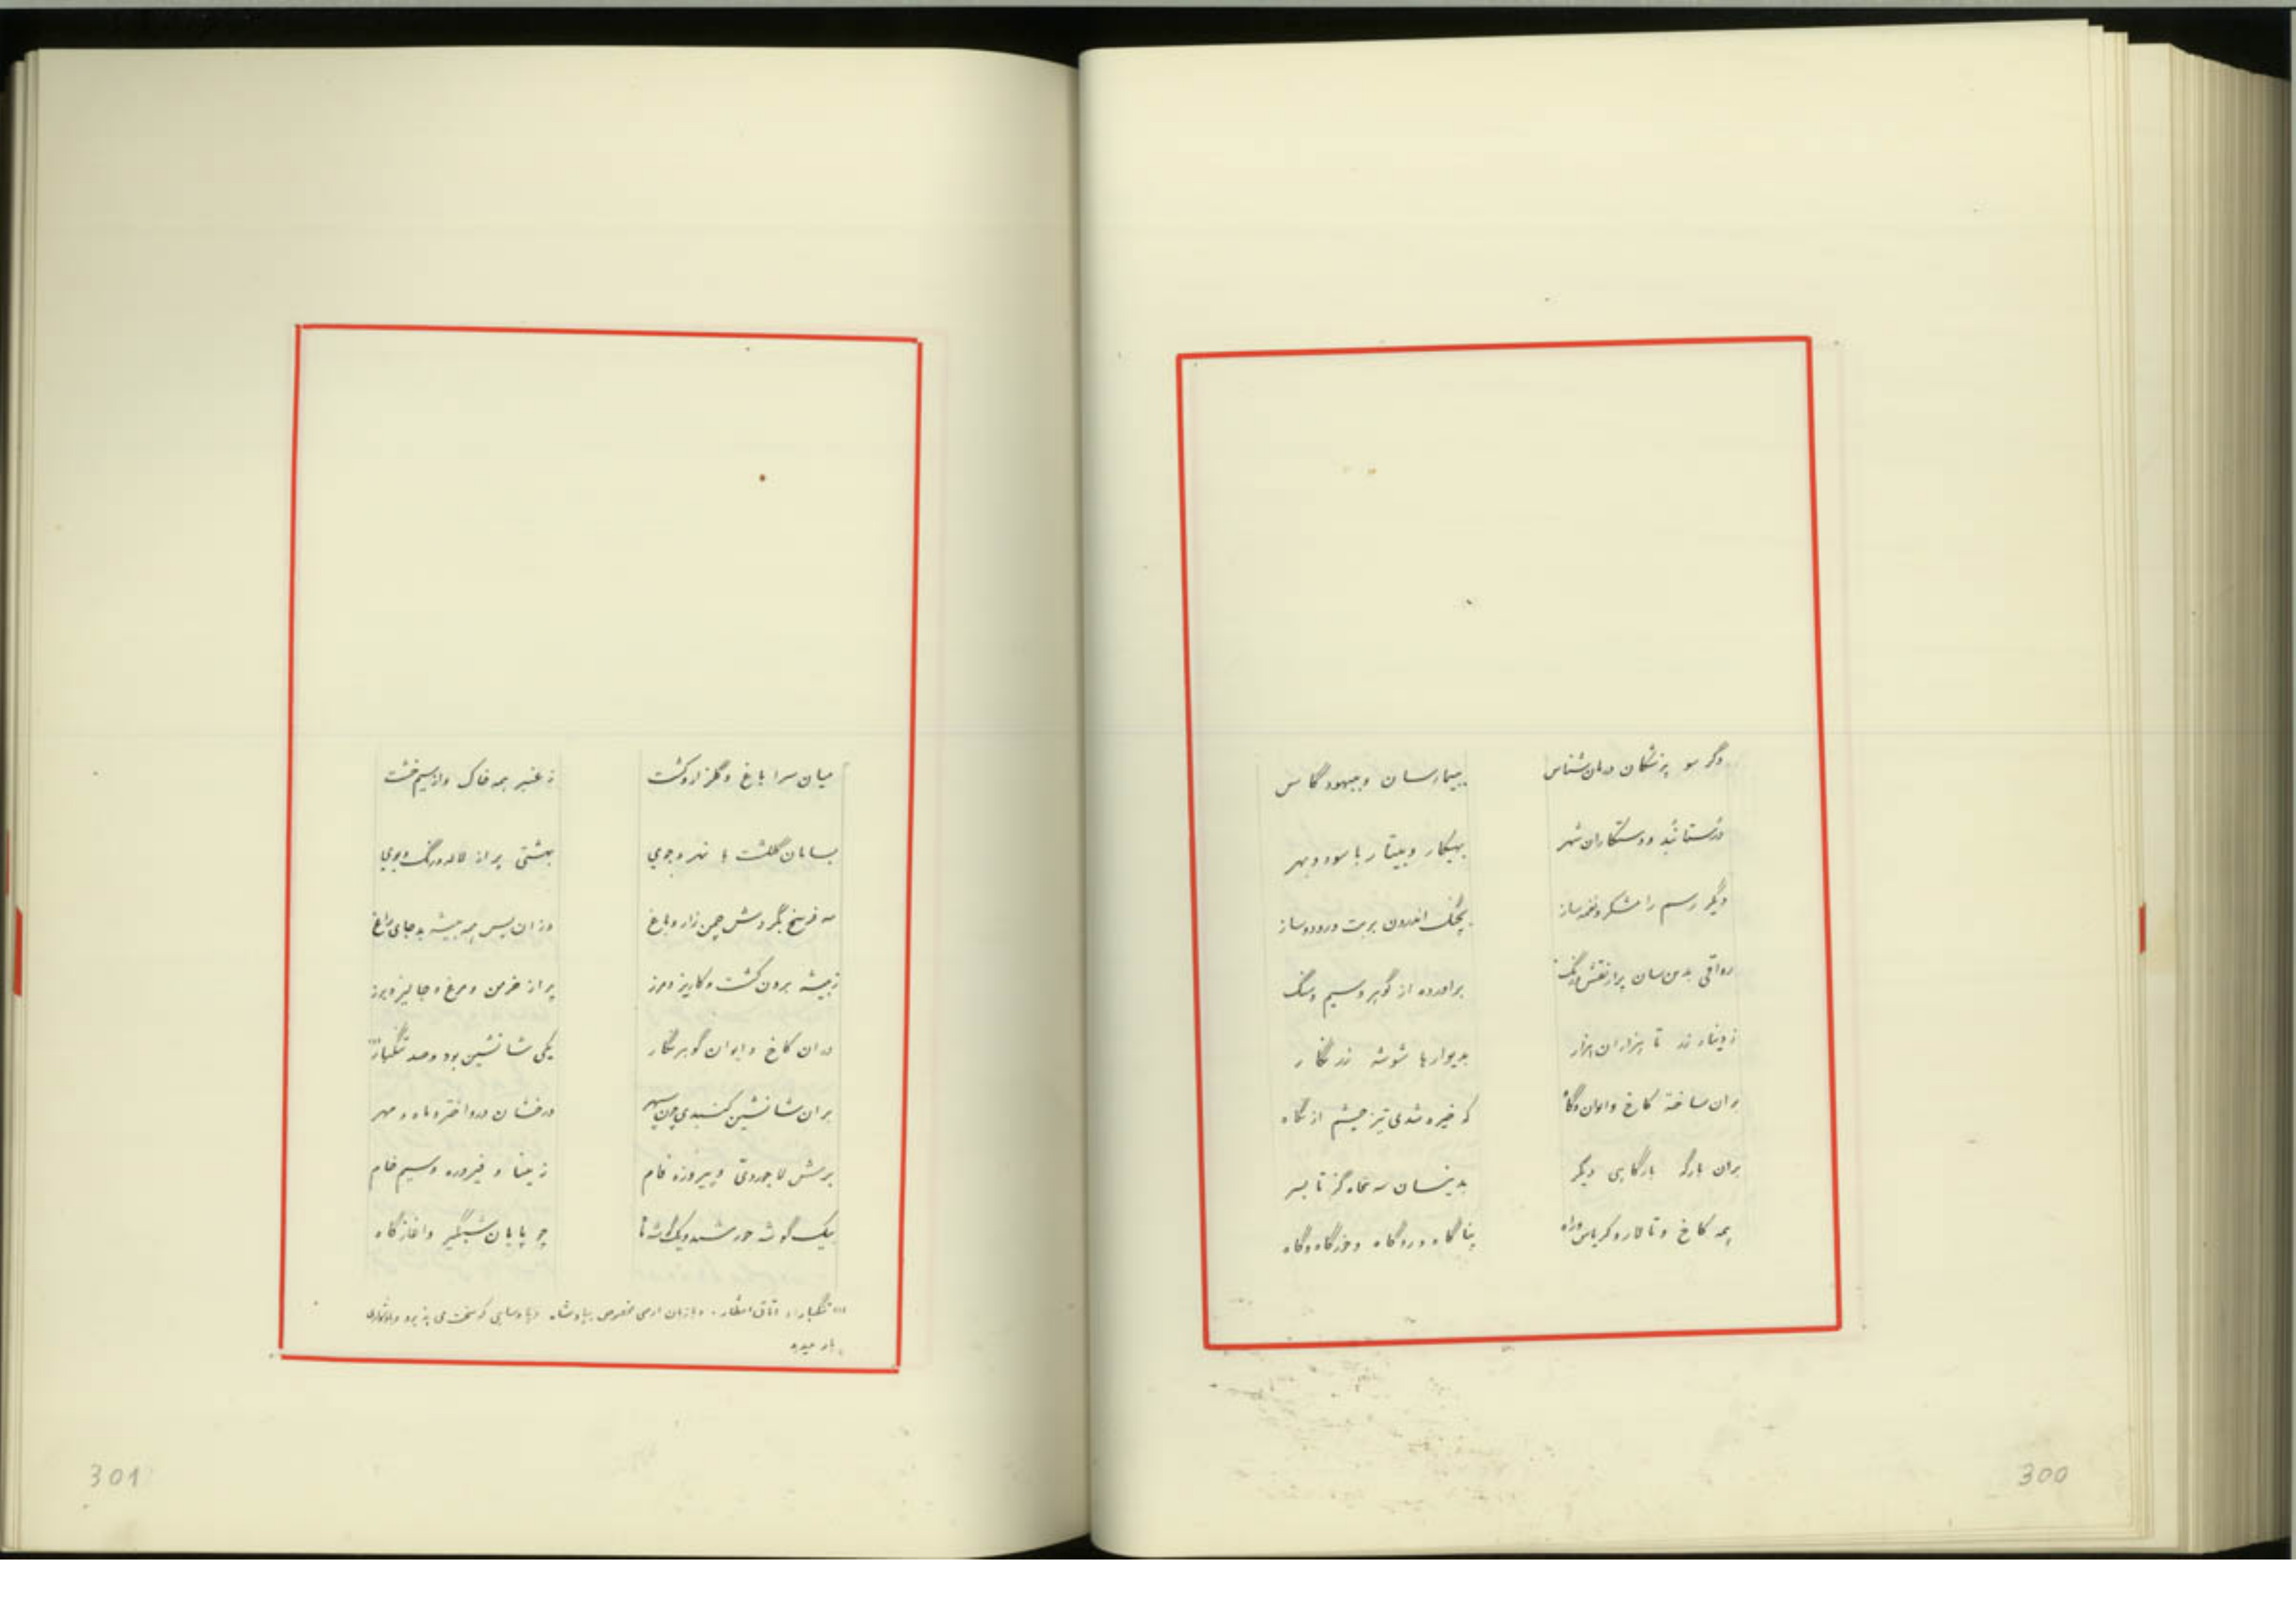 دگر سو پزشکان درمان شناس بیمارسان و بیهود کاس
درستانبد و دستکاران شهر بپیکار و بیتار با سود و بهر
دیگر رسم رامشگر و نغمه ساز بچنگ اندرون بربت و رود و ساز
رواقی بدین سان پر از نقش و رنگ برآورده از گوهر و سیم و سنگ
ز دینار زر تا هزاران هزار بدیوارها شوشه زر نگار
بران ساخته کاخ و ایوان و گاه که خیره شدی تیز چشم از نگاه
بران بارگه بارگاهی دیگر بدینسان سه پنجاه گز تا بسر
همه کاخ و تالار و کریاس و راه پناگاه و درگاه و خرگاه و گاه
300
میان سرا باغ و گلزار و کشت ز عنبر همه خاک و از سیم خشت
بسامان گلگشت با نهر و جوی بهشتی پر از لاله و رنگ و بوی
سه فرسخ بگردش چمن زار و باغ وزان پس همه بیشه بد جای راغ
ز بیشه برون کشت و کاریز و مرز پر از خرمن و مرغ و جالیز و برز
دران کاخ و ایوان گوهر نگار یکی شانشین بود و صد تنگبار
بران شانشین گنبدی چون سپهر درخشان درو اختر و ماه و مهر
برش لاجوردی و پیروزه فام ز مینا و فیروزه و سیم خام
بیک گوشه خورشید و یک گوشه ماه چو پایان شبگیر و آغاز گاه
تنگبار: اتاق انتظار. و بزبان ارمی مخصوص پادشاه. و پادشاهی که سخت می پذیرد و بدشواری
بار میدهد
301